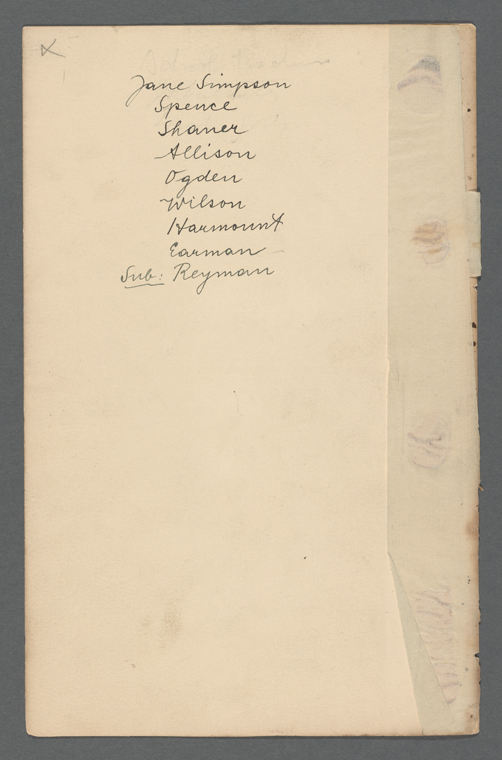 Jane Simpson
Spence
Shaner
Allison
Ogden
Wilson
Harmount
Earman
Sub: Reyman